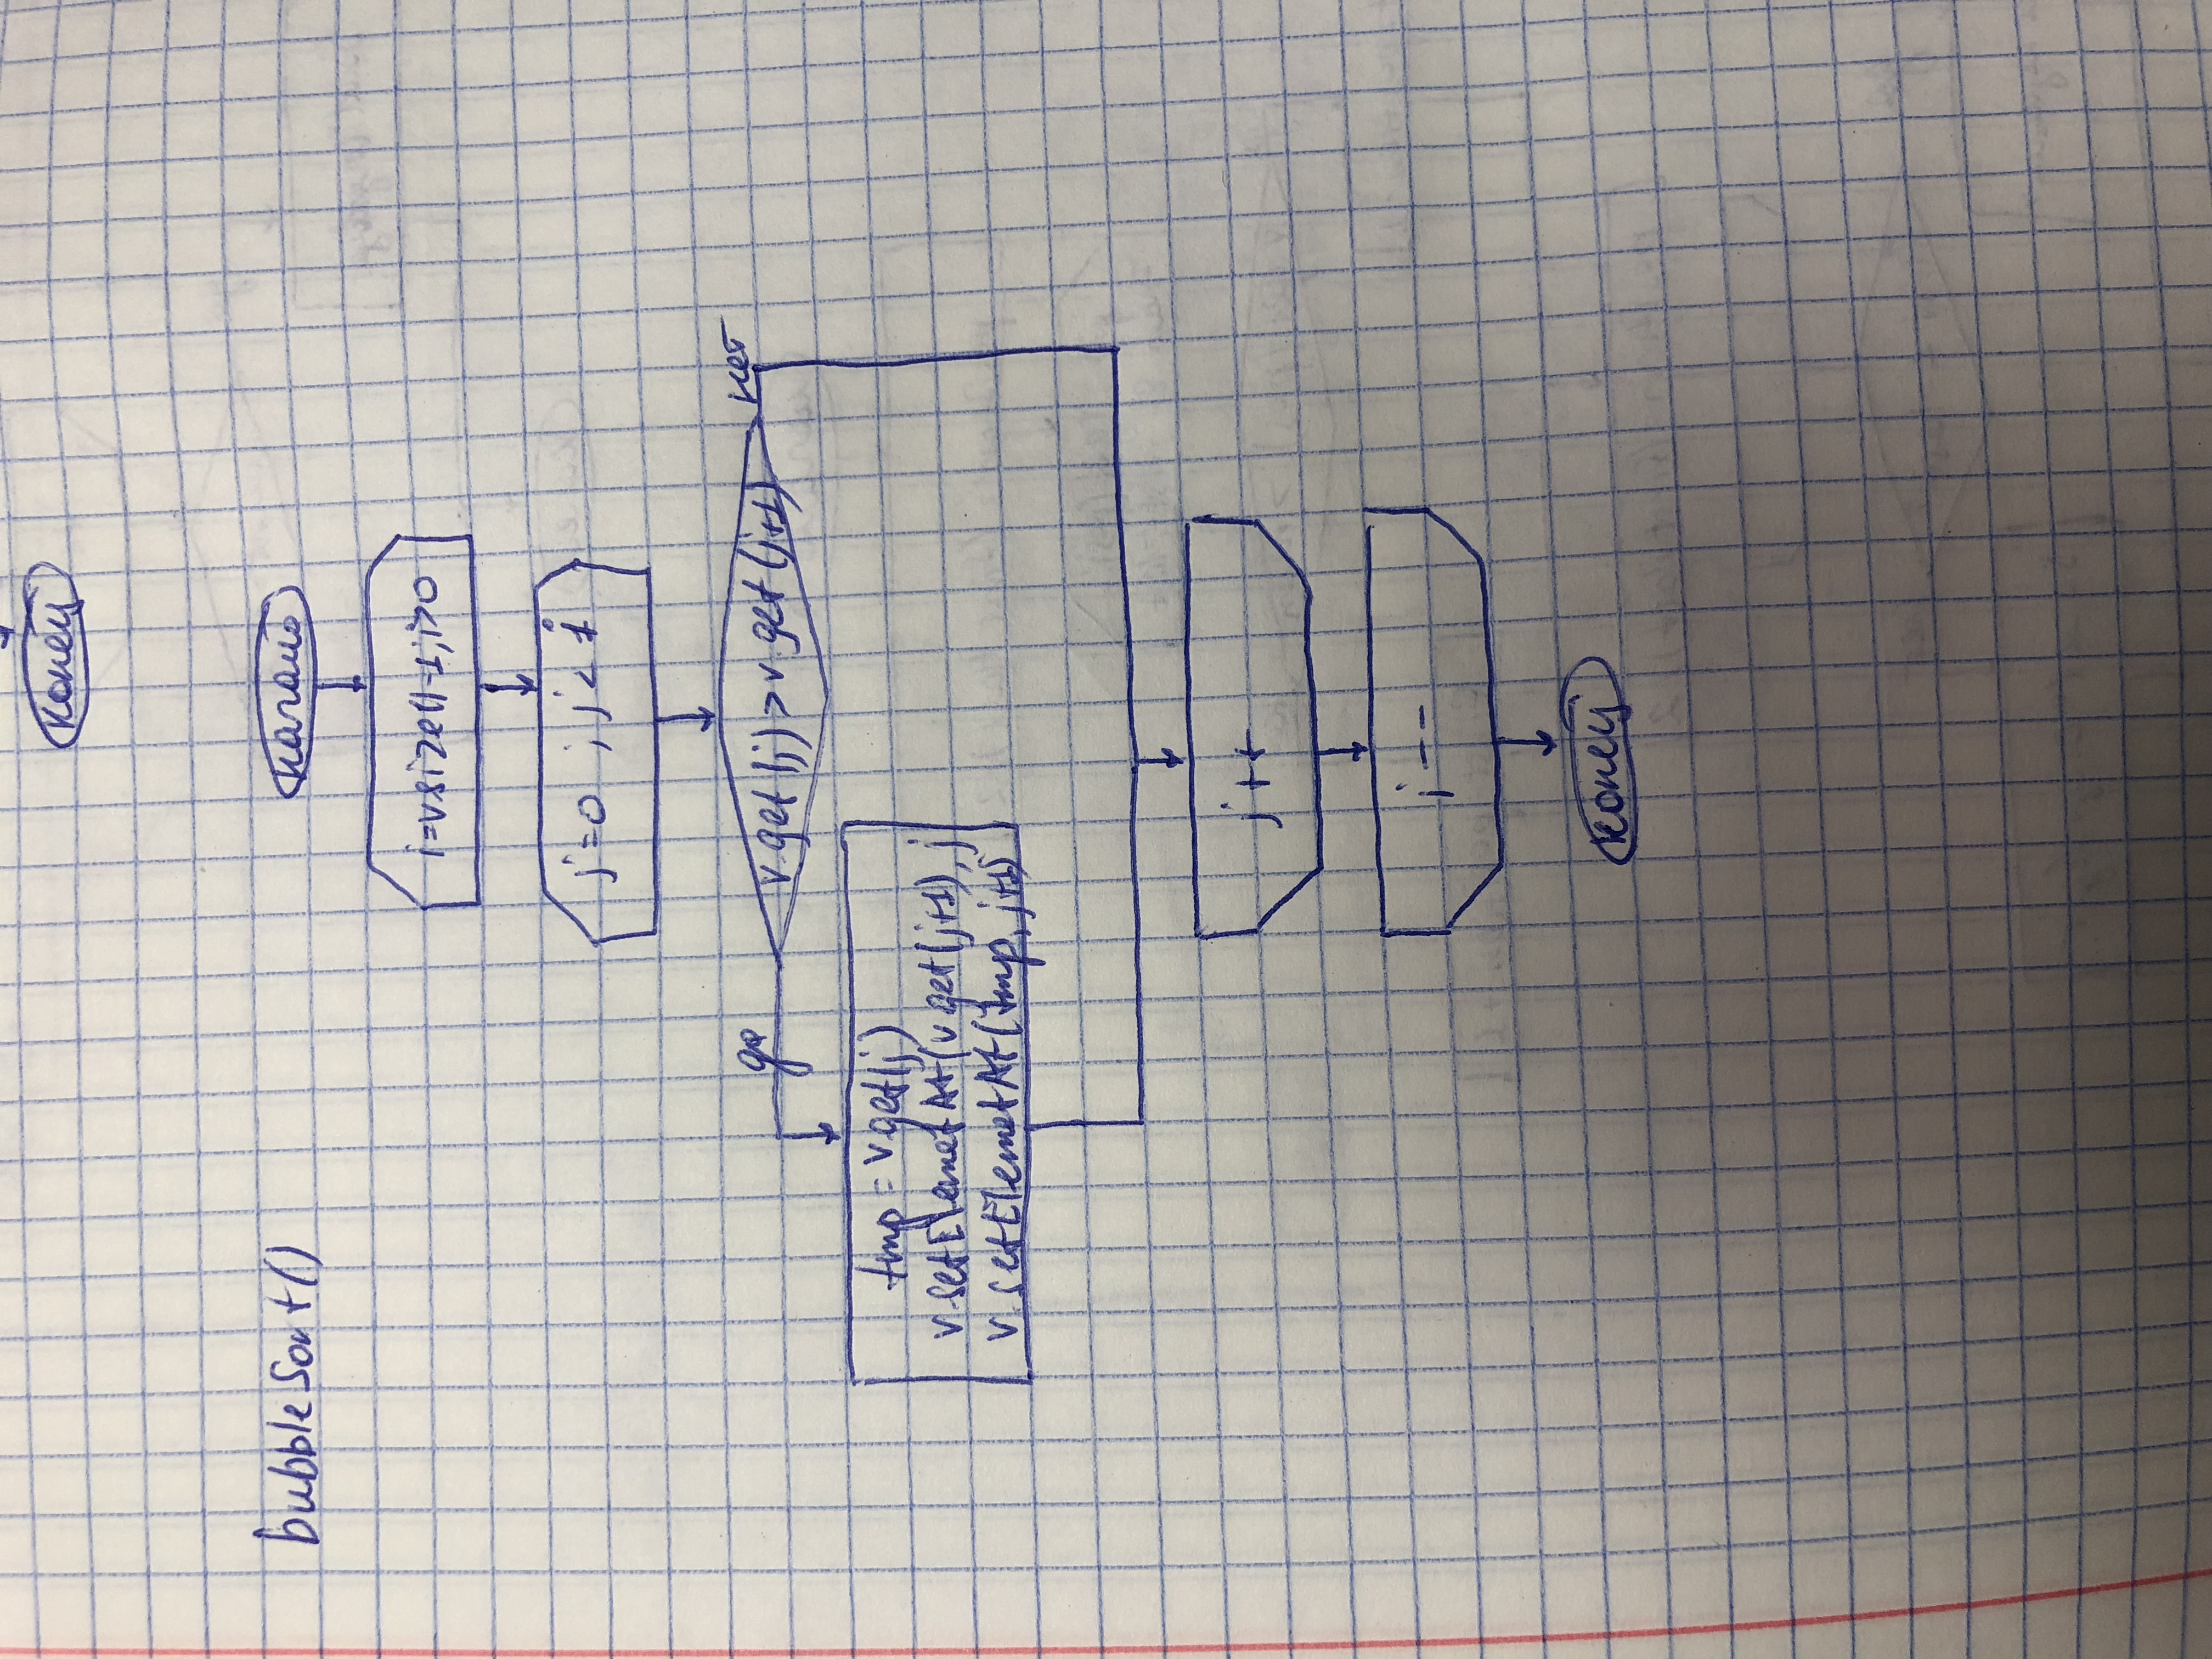 конец
bubbleSort()
начало
i=v.size()-1; i>0
j=0 ; j< i
v.get(j)>v.get(j+1)
да
нет
tmp = v.get(j)
v.setElemetAt(v.get(j+1), j
v.setElemetAt(tmp, j+1)
j++
i--
конец